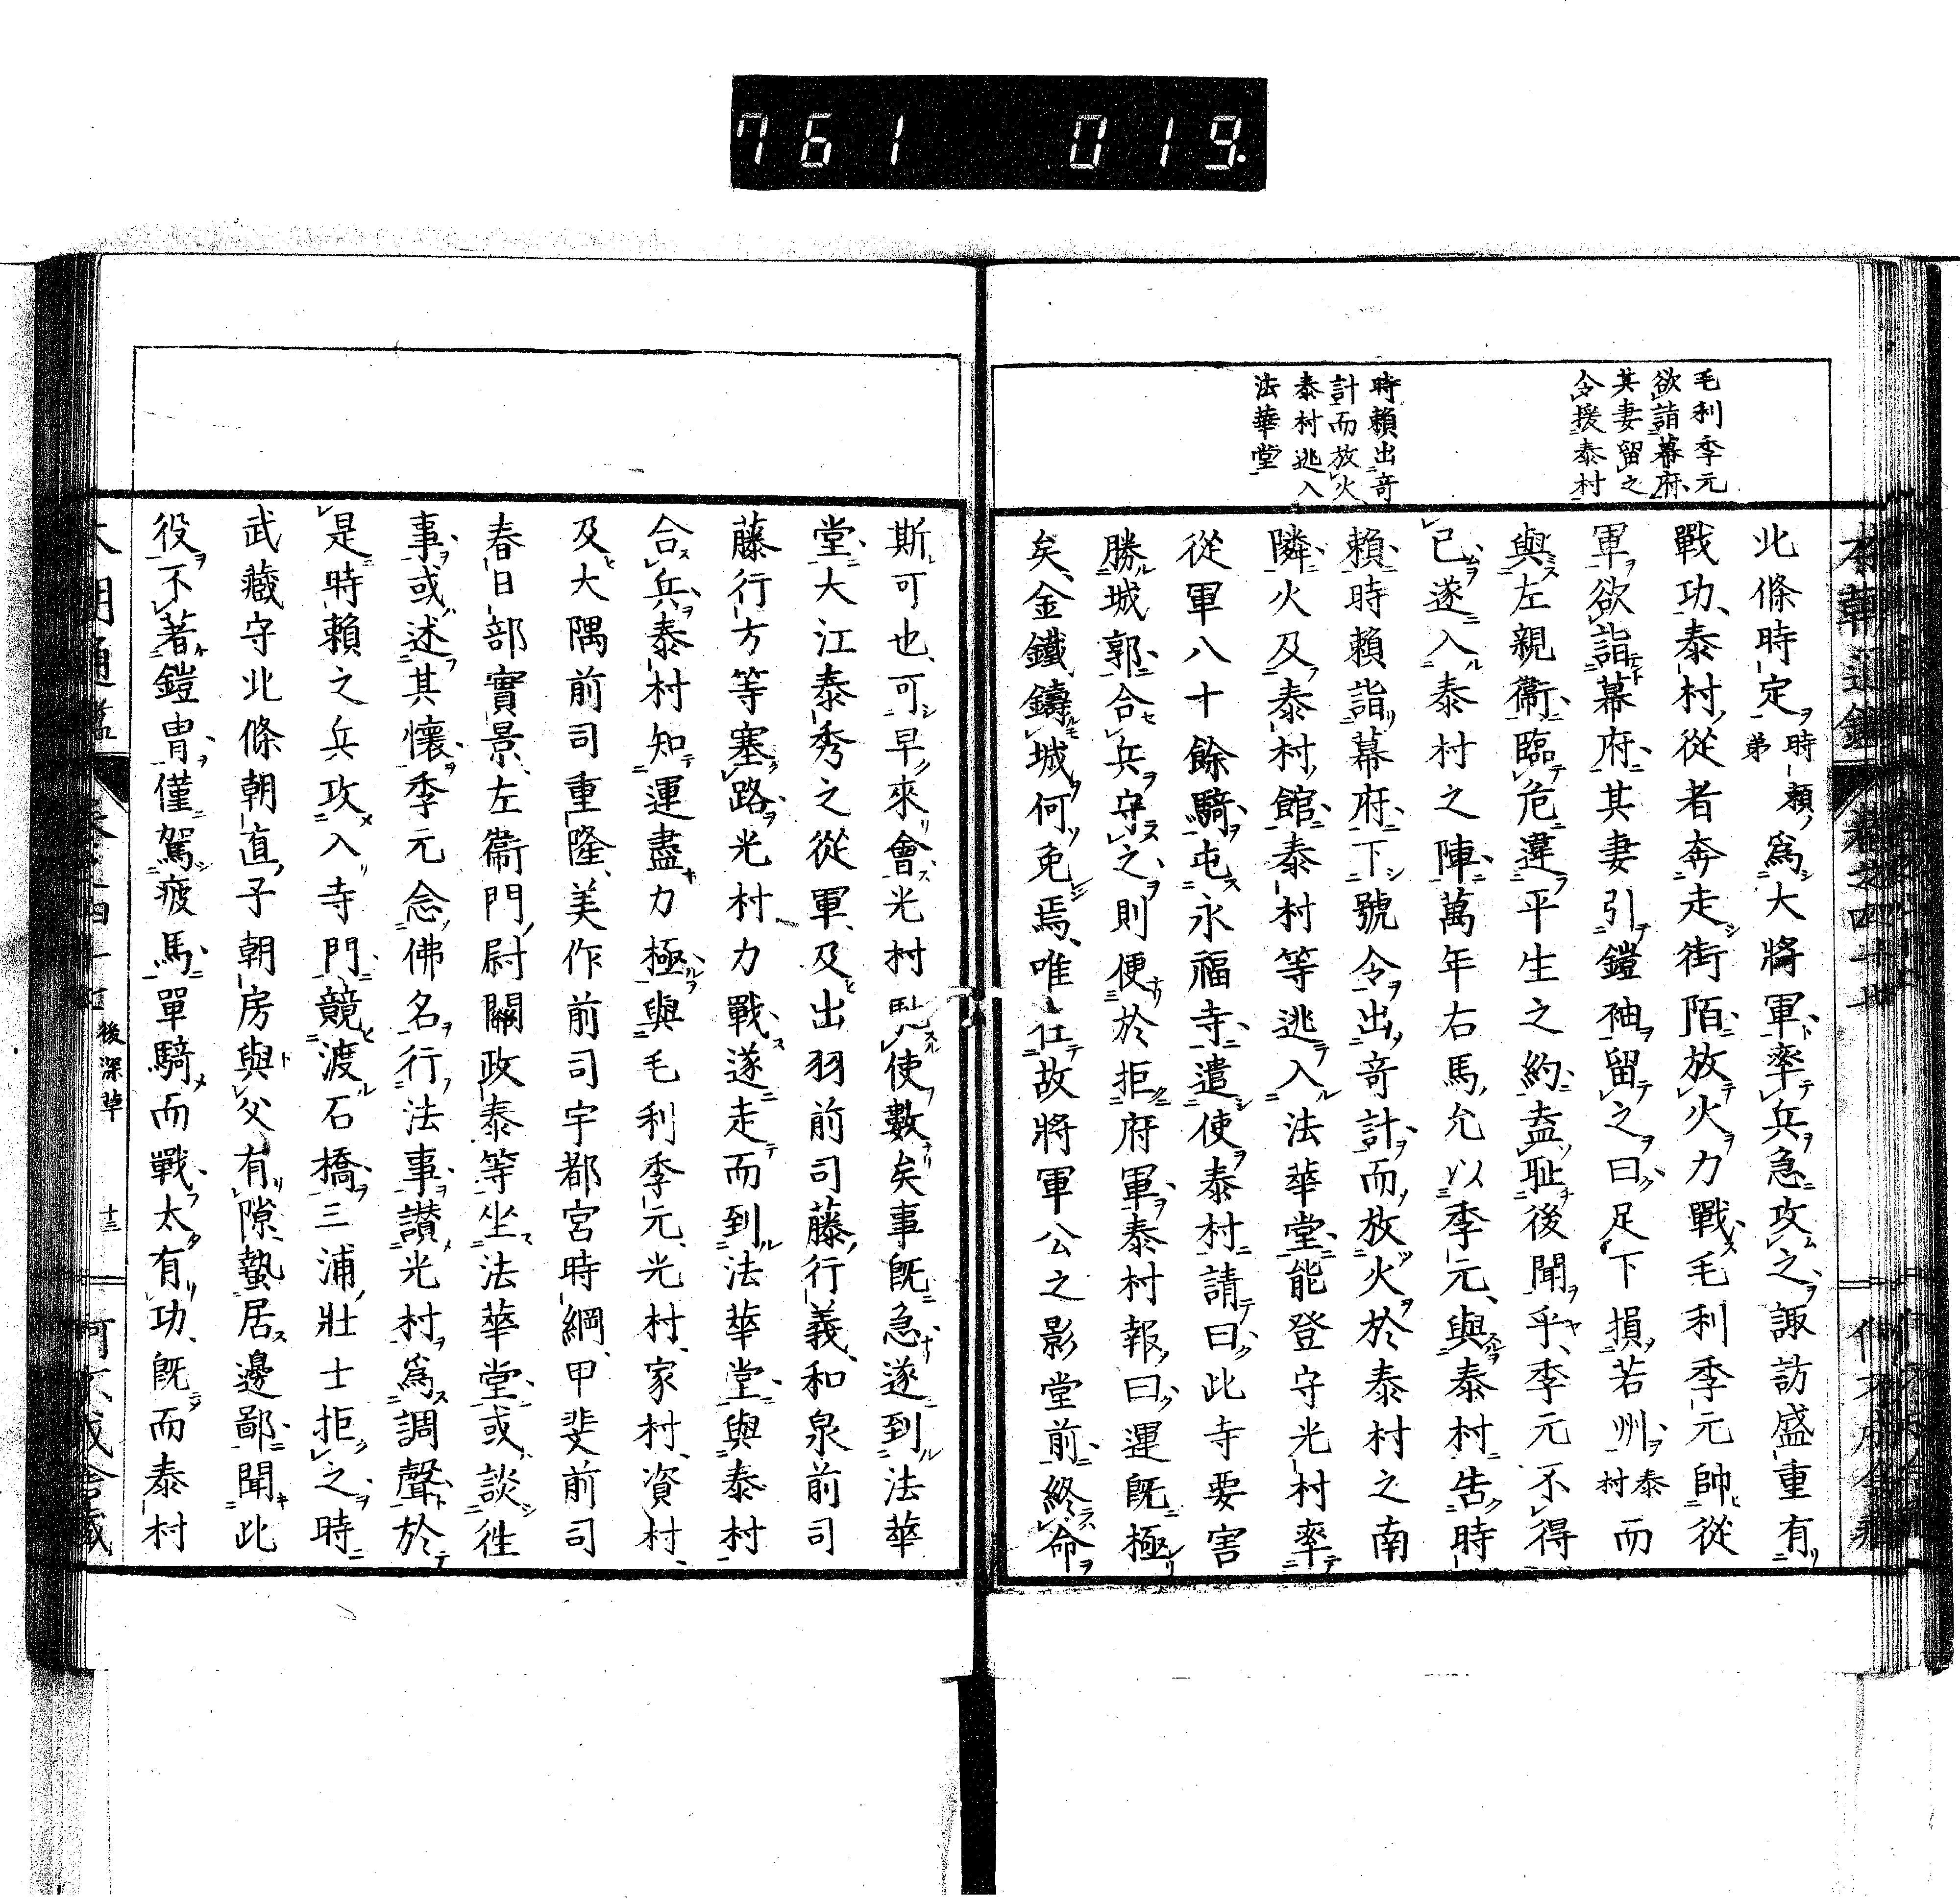 761 019
毛利季元
欲詣幕府
其妻留之
令援泰村
時賴出奇
計而放火
泰村逃入
法華堂
北條時定時賴弟爲大將軍率兵急攻之諏訪盛重有
戰功泰村從者奔走街陌放火力戰毛利季元帥從
軍欲詣幕府其妻引鎧袖留之曰足下損若州泰村而
與左親衞臨危違平生之約盍耻後聞乎季元不得
已遂入泰村之陣萬年右馬允以季元與泰村告時
賴時賴詣幕府下號令出奇計而放火於泰村之南
隣火及泰村館泰村等逃入法華堂能登守光村率
從軍八十餘騎屯永福寺遣使泰村請曰此寺要害
勝城郭合兵守之則便於拒府軍泰村報曰運既極
矣金鐵鑄城何免焉唯在故將軍公之影堂前終命
斯可也可早來會光村使數矣事既急遂到法華
堂大江泰秀之從軍及出羽前司藤行義和泉前司
藤行方等塞路光村力戰遂走而到法華堂與泰村
合兵泰村知運盡力極與毛利季元光村家村資村
及大隅前司重隆美作前司宇都宮時綱甲斐前司
春日部實景左衞門尉關政泰等坐法華堂或談往
事或述其懷季元念佛名行法事讃光村爲調聲於
是時賴之兵攻入寺門競渡石橋三浦壯士拒之時
武藏守北條朝直子朝房與父有隙蟄居邊鄙聞此
役不著鎧冑僅駕疲馬單騎而戰太有功既而泰村
後深草 十三